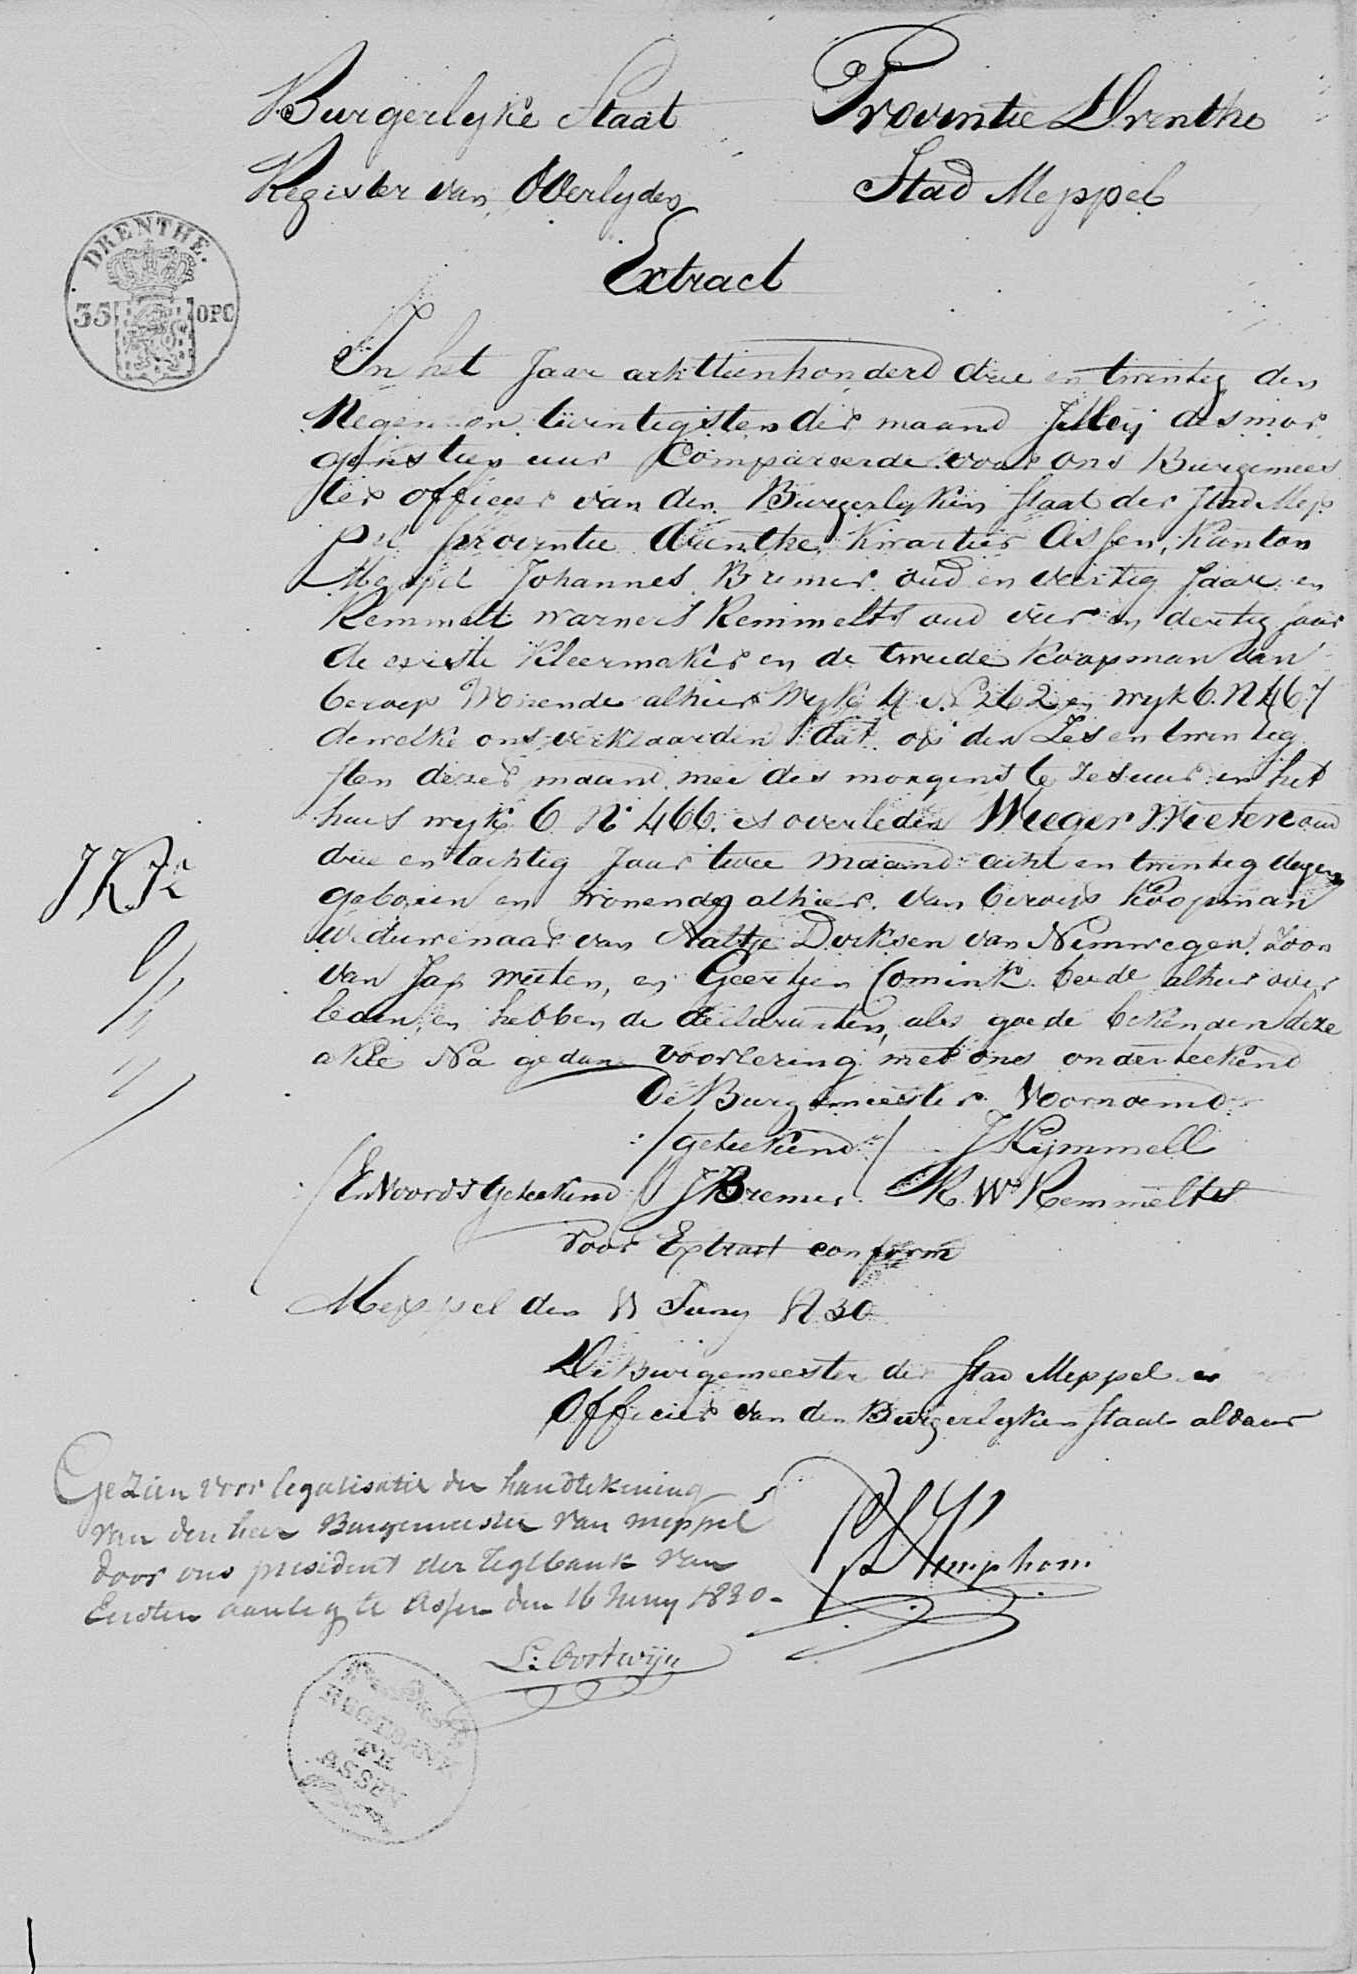 Burgerlyke Staat Provintie Drenthe
Register van Overlyden Stad Meppel
DRENTHE.
35 OPC
Extract
In het Jaar achttienhonderd drie en twintig den
Negen en twintigsten der maand Meij des mor
gens tien uur Compareerde voor ons Burgemees
ter officier van den Burgerlyken Staat der Stad Mep
pel provintie Drenthe, Kwartier Assen, Kanton
Meppel Johannes Bremer oud en veertig Jaar en
Remmelt warners Remmelts oud vier en dertig Jaar
de eerste Kleermaker en de tweede Koopman van
beroep Wonende alhier Wyk 4 N 262 en wyk 6. N 467
dewelke ons verklaarden dat op den Zes en twintig
sten dezer maand mei des morgens te zes uur in het
huis wyk 6 N 466. is overleden Meeger Meeten oud
drie en tachtig Jaar twee maand acht en twintig dagen
geboren en wonende alhier. van beroep Koopman
Weduwenaar van Aaltje Derksen van Nimwegen. Zoon
van Jan meeten, en Geertjen Comink. beide alhier over
leden, en hebben de declaranten, als goede bekenden deze
akte Na gedane voorlezing met ons onderteekend
De Burgemeester Voornoemd
:/geteekend:/ J Kymmell
En Voorts Geteekend J Bremer R. W Remmelts
Voor Extract conform
Meppel den Juny 1830
De Burgemeester der Stad Meppel en
Officier van den Burgerlyken Staat aldaar
Gezien voor legalisatie der handtekening
van den heer Burgemeester van meppel
door ons president der regtbank van
Eersten aanleg te Assen den 16 Juny 1830.
L: Oortwijn
REGTBANK
TE
ASSEN